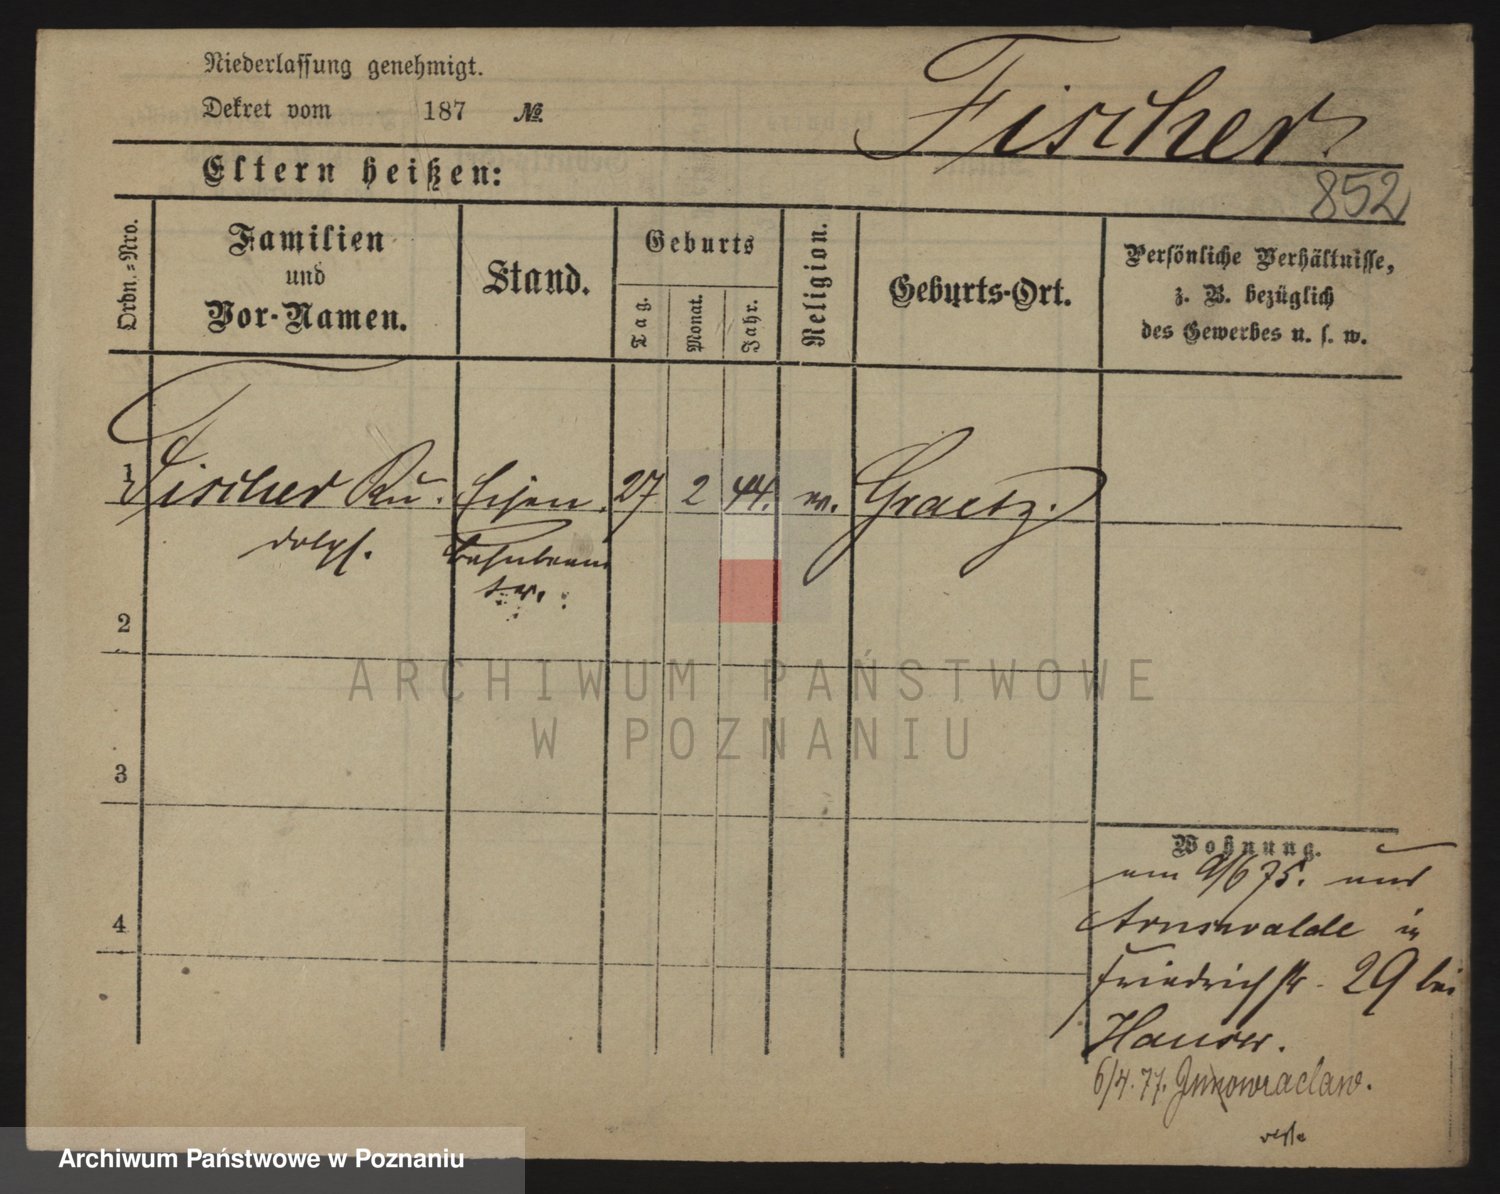 Niederlassung genehmigt.
Dekret vom 187 №
Fischer
Eltern heißen:
852
Ordn.-Nro.
Familien
und
Vor-Namen.
Stand.
Geburts
Tag.
Monat.
Jahr.
Religion.
Geburts-Ort.
Persönliche Verhältnisse,
z. B. bezüglich
des Gewerbes u. s. w.
1 Fischer Ru. Eisen. 27 2 44. Graetz.
dolph. Bahnbeam
ter.
2
ARCHIWUM PAŃSTWOWE
W POZNANIU
3
Wohnung.
am 9/6 75. aus
Arnswalde in
Friedrichstr. 29 bei
4
6/4. 77. Inowraclaw.
Archiwum Państwowe w Poznaniu